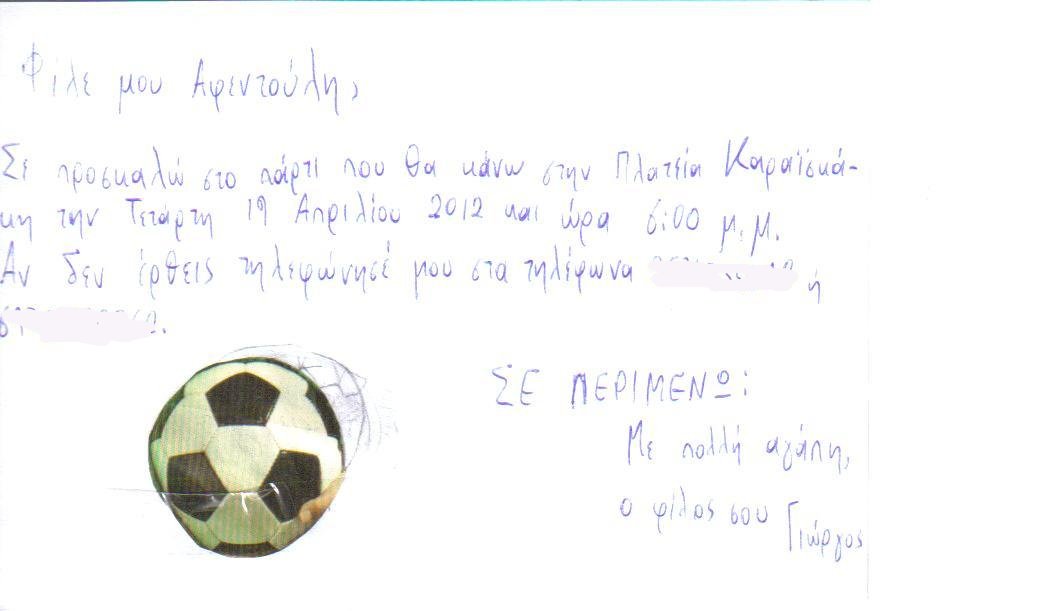 Φίλε μου Αφεντούλη,
Σε προσκαλώ στο πάρτι που θα κάνω στην Πλατεία Καραϊσκά-
κη την Τετάρτη 19 Απριλίου 2012 και ώρα 6:00 μ.μ.
Αν δεν έρθεις τηλεφώνησέ μου στα τηλέφωνα ή
ΣΕ ΠΕΡΙΜΕΝΩ:
Με πολλή αγάπη,
ο φίλος σου Γιώργος